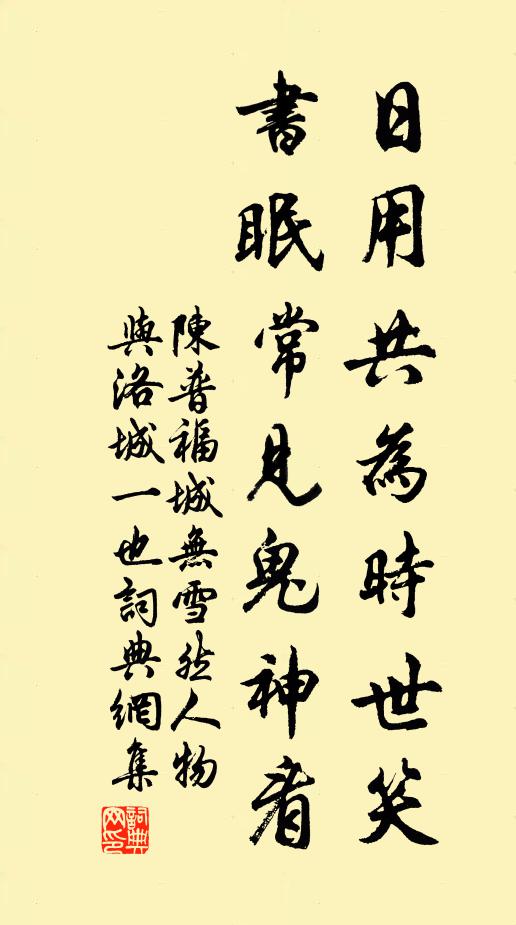 日用共為時世笑
書眠常見鬼神看
陳普福城無雪然人物
與洛城一也詞典網集
詞典網印